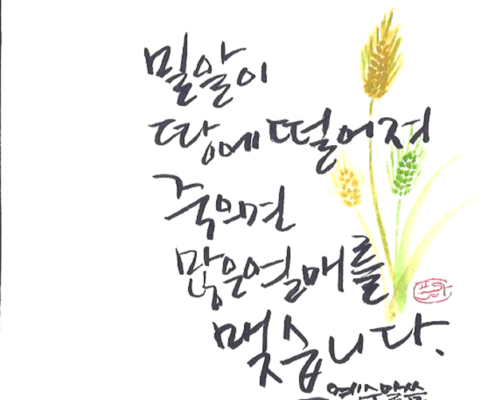 밀알이
땅에 떨어져
죽으면
많은 열매를
맺습니다.
예수말씀